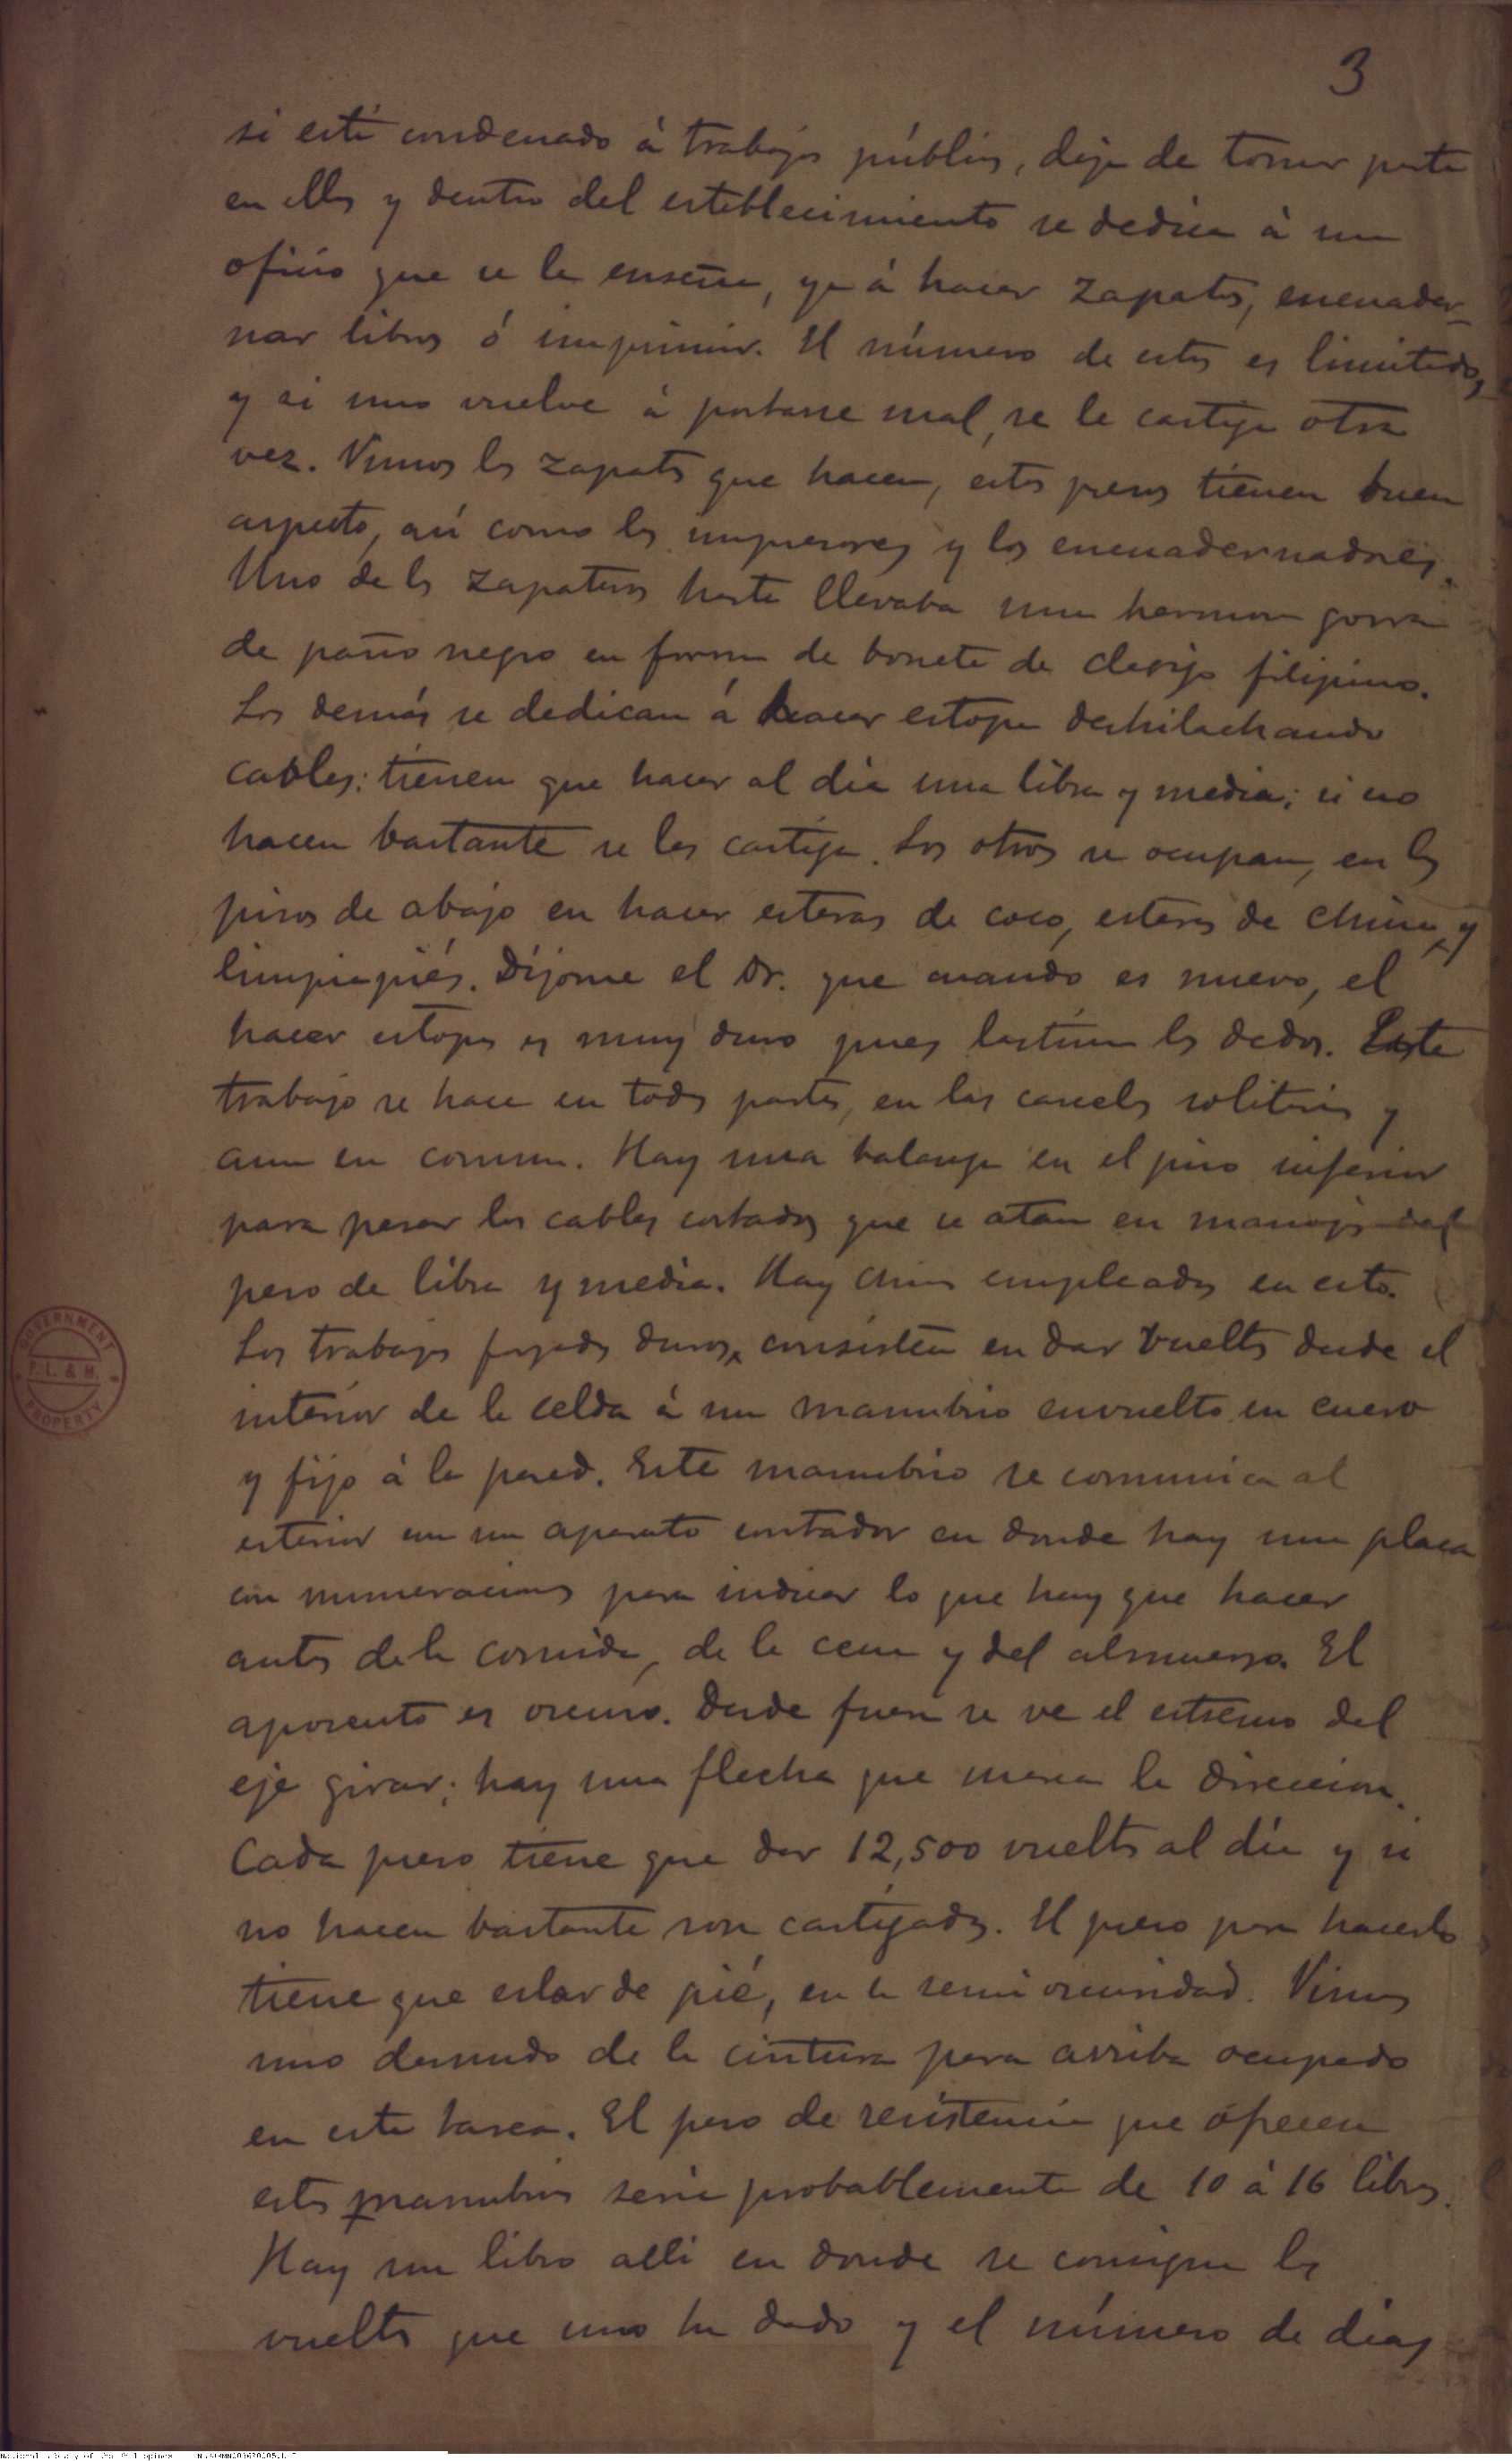 3
si está condenado á trabajos públicos, deja de tomar parte
en ellos y dentro del establecimiento se dedica á un
oficio que se le enseña, ya á hacer zapatos, encuader-
nar libros ó imprimir. El número de estos es limitado,
y si uno vuelve á portarse mal, se le castiga otra
vez. Vimos los zapatos que hacen, estos presos tienen buen
aspecto, así como los impresores y los encuadernadores.
Uno de los zapateros hasta llevaba una hermosa gorra
de paño negro en forma de bonete de clérigo filipino.
Los demás se dedican á hacer estopa deshilachando
cables: tienen que hacer al día una libra y media; si no
hacen bastante se les castiga. Los otros se ocupan, en los
pisos de abajo en hacer esteras de coco, esteras de China, y
limpiapiés. Díjome el Dr. que cuando es nuevo, el
hacer estopa es muy duro pues lastima los dedos. Este
trabajo se hace en todas partes, en las carceles solitarias y
aun en comun. Hay una balanza en el piso inferior
para pesar los cables cortados que se atan en manojos del
peso de libra y media. Hay chinos empleados en esto.
Los trabajos forzados duros, consisten en dar vueltas desde el
interior de la celda á un manubrio envuelto en cuero
y fijo á la pared. Este manubrio se comunica al
esterior con un aparato contador en donde hay una placa
con numeraciones para indicar lo que hay que hacer
antes de la comida, de la cena y del almuerzo. El
aposento es oscuro. Desde fuera se ve el estremo del
eje girar; hay una flecha que marca la direccion.
Cada preso tiene que dar 12,500 vueltas al día y si
no hacen bastante son castigados. El preso para hacerlo
tiene que estar de pié, en la semi oscuridad. Vimos
uno desnudo de la cintura para arriba ocupado
en esta tarea. El peso de resistencia que ofrecen
estos manubrios sería probablemente de 10 á 16 libras.
Hay un libro allí en donde se consigna las
vueltas que uno ha dado y el número de días
GOVERNMENT
P.L. & M.
PROPERTY